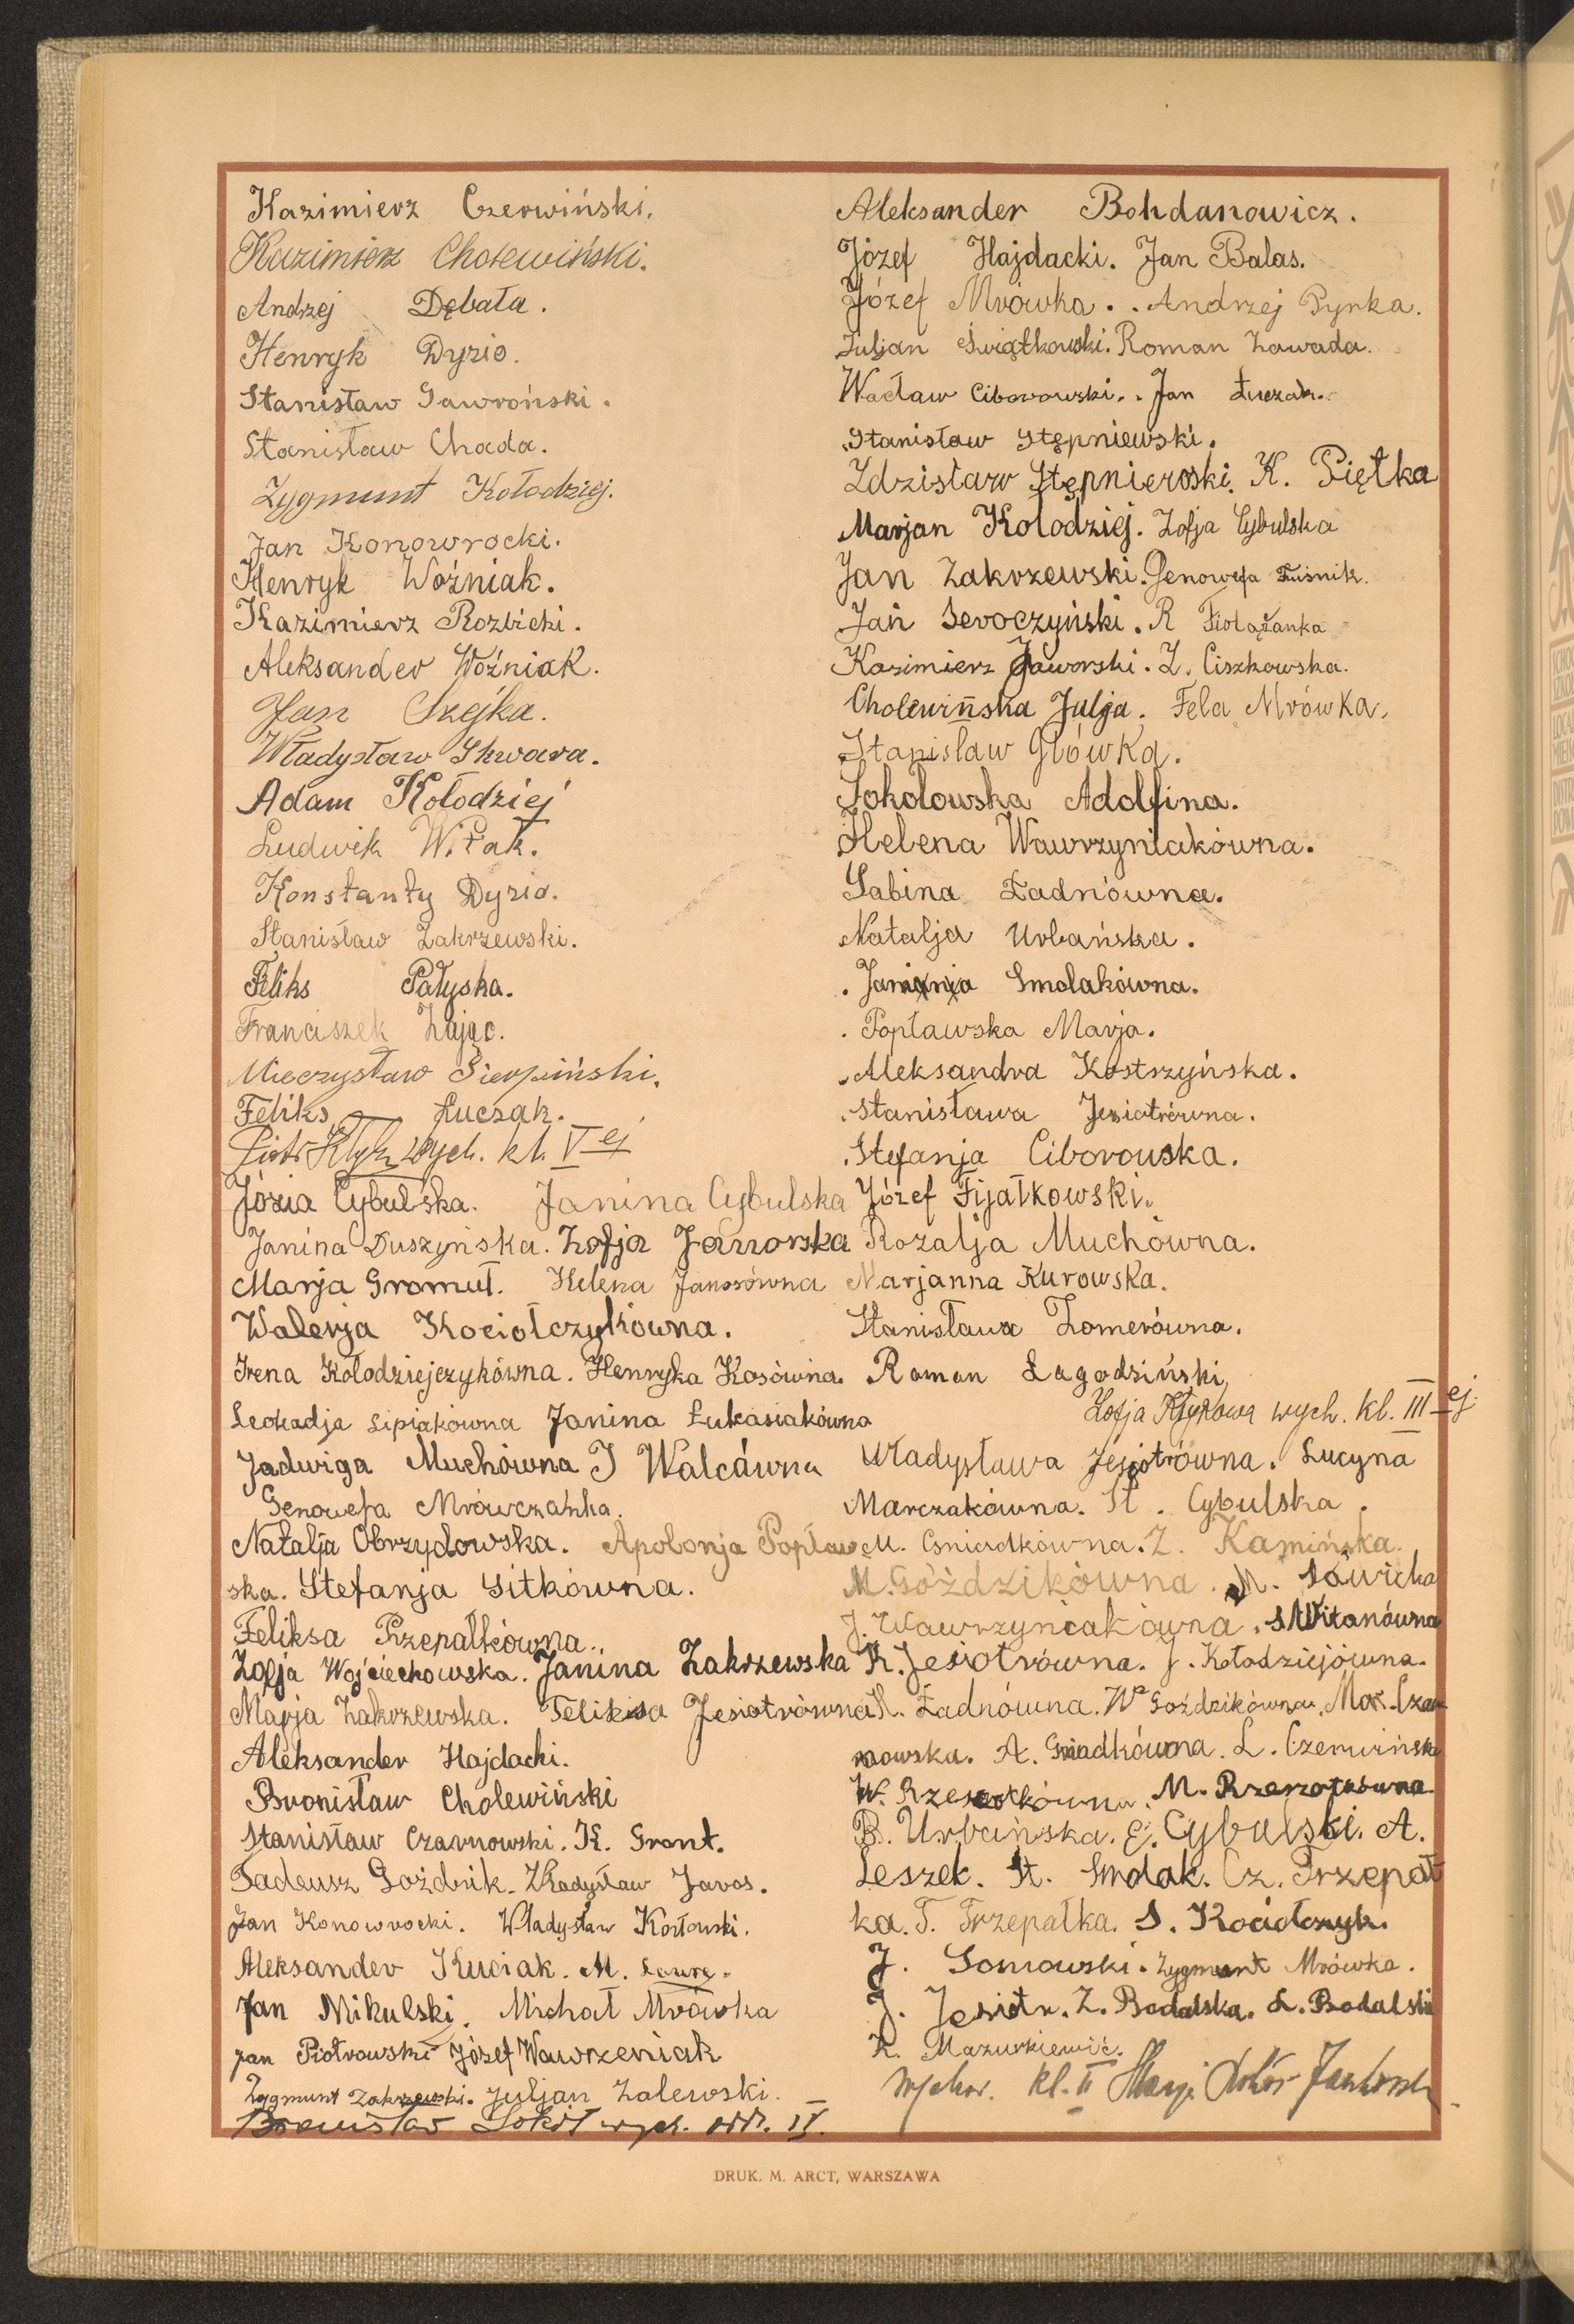 Kazimierz Czerwiński.
Kazimierz Cholewiński.
Andrzej Dębała.
Henryk Dyzio.
Stanisław Gawroński.
Stanisław Chada.
Zygmunt Kołodziej.
Jan Konowrocki.
Henryk Woźniak.
Kazimierz Rozbicki.
Aleksander Woźniak.
Jan Szejka.
Władysław Skwara.
Adam Kołodziej
Ludwik Witak.
Konstanty Dyzio.
Stanisław Zakrzewski.
Feliks Pałyska.
Franciszek Zając.
Mieczysław Sierpiński.
Feliks Łuczak.
Piotr Kłyk wych. kl. V ej
Józia Cybulska. Janina Cybulska
Janina Duszyńska. Zofja Jaworska
Marja Gromuł. Helena Janosówna
Walerja Kociołczykówna.
Irena Kołodziejczykówna. Henryka Kosówna.
Leokadja Lipiakówna Janina Łukasiakówna
Jadwiga Muchówna J Walcówna
Genowefa Mrówczanka.
Natalja Obrzydowska. Apolonja Popław
ska. Stefanja Sitkówna.
Feliksa Przepałkówna.
Zofja Wojciechowska. Janina Zakrzewska
Marja Zakrzewska. Feliksa Jesiotrówna
Aleksander Hajdacki.
Bronisław Cholewiński
Stanisław Czarnowski. K. Gront.
Tadeusz Goździk. Władysław Jaros.
Jan Konowrocki. Władysław Kozłowski.
Aleksander Kuciak. M.
Jan Nikulski. Michał Mrówka
Jan Piotrowski Józef Wawrzeniak
Zygmunt Zakrzewski. Juljan Zalewski.
Bronisław Sokół wych. odd. II.
Aleksander Bohdanowicz.
Józef Hajdacki. Jan Balas.
Józef Mrówka. . Andrzej Pyrka.
Juljan Świątkowski. Roman Zawada.
Wacław Ciborowski. . Jan Łuczak.
Stanisław Stępniewski.
Zdzisław Stępniewski. K. Piętka
Marjan Kołodziej. Zofja Cybulska
Jan Zakrzewski. Genowefa Kuśnik.
Jan Seroczyński. R
Kazimierz Jaworski. Z. Ciszkowska.
Cholewińska Julja. Fela Mrówka.
Stanisław Główka.
Sokołowska Adolfina.
Helena Wawrzyniakówna.
Sabina Ładnówna.
Natalja Urbańska.
Janina Smolakówna.
Popławska Marja.
Aleksandra Kostrzyńska.
Stanisława Jesiotrówna.
Stefanja Ciborowska.
Józef Fijałkowski.
Rozalja Muchówna.
Marjanna Kurowska.
Stanisława Zomerówna.
Roman Łagodziński
Zofja Kłykowa wych. kl. III ej.
Władysława Jesiotrówna. Lucyna
Marczakówna. St. Cybulska.
M. Gniadkówna. Z. Kamińska.
M. Góździkówna. M. Sawicka
J. Wawrzyniakówna. S Witanówna
K. Jesiotrówna. J. Kołodziejówna.
Ł. Ładnówna. Wa Goździkówna. Mar. Czar
nowska. A. Gniadkówna. L. Czerwińska
W. Rzeszotkówna. M. Rzeszotkówna.
B. Urbańska. E. Cybulski. A.
Leszek. St. Smolak. Cz. Przepał
ka. T. Przepałka. S. Kociołczyk.
J. Somowski. Zygmunt Mrówka.
J. Jesiotr. Z. Bodalska. L. Bodalski
K. Mazurkiewić.
wychow. kl. II
DRUK. M. ARCT, WARSZAWA